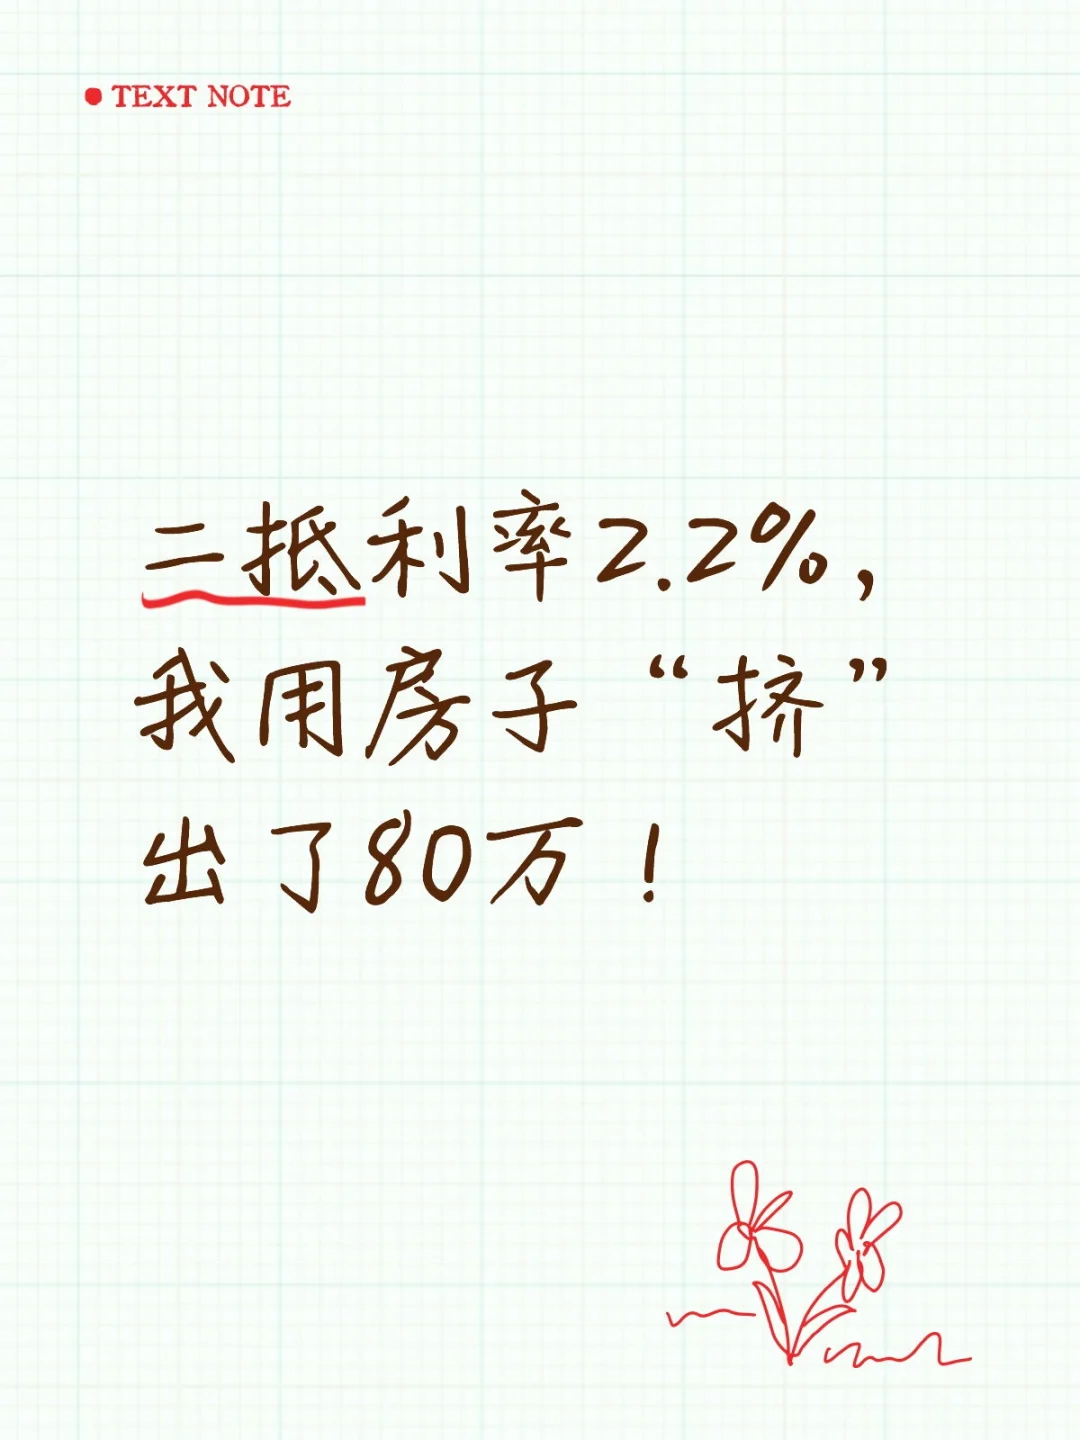 TEXT NOTE
二抵利率2.2%,
我用房子“挤”
出了80万！